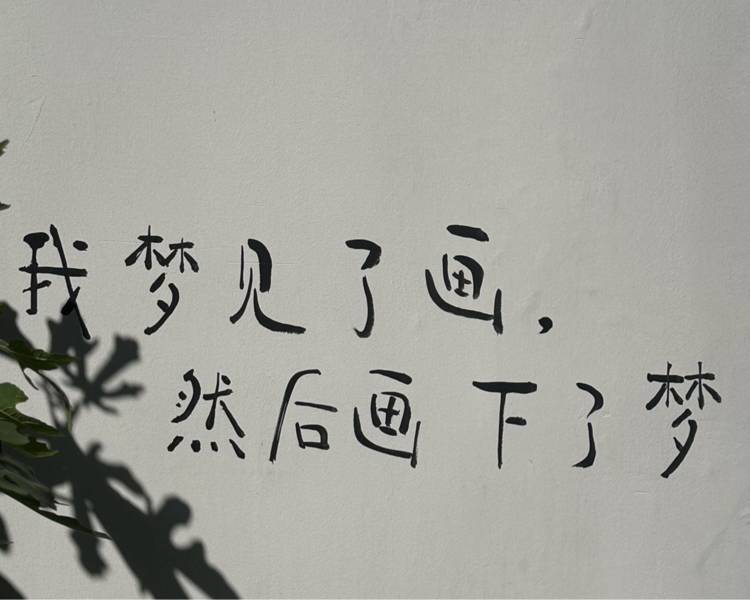 我梦见了画，
然后画下了梦